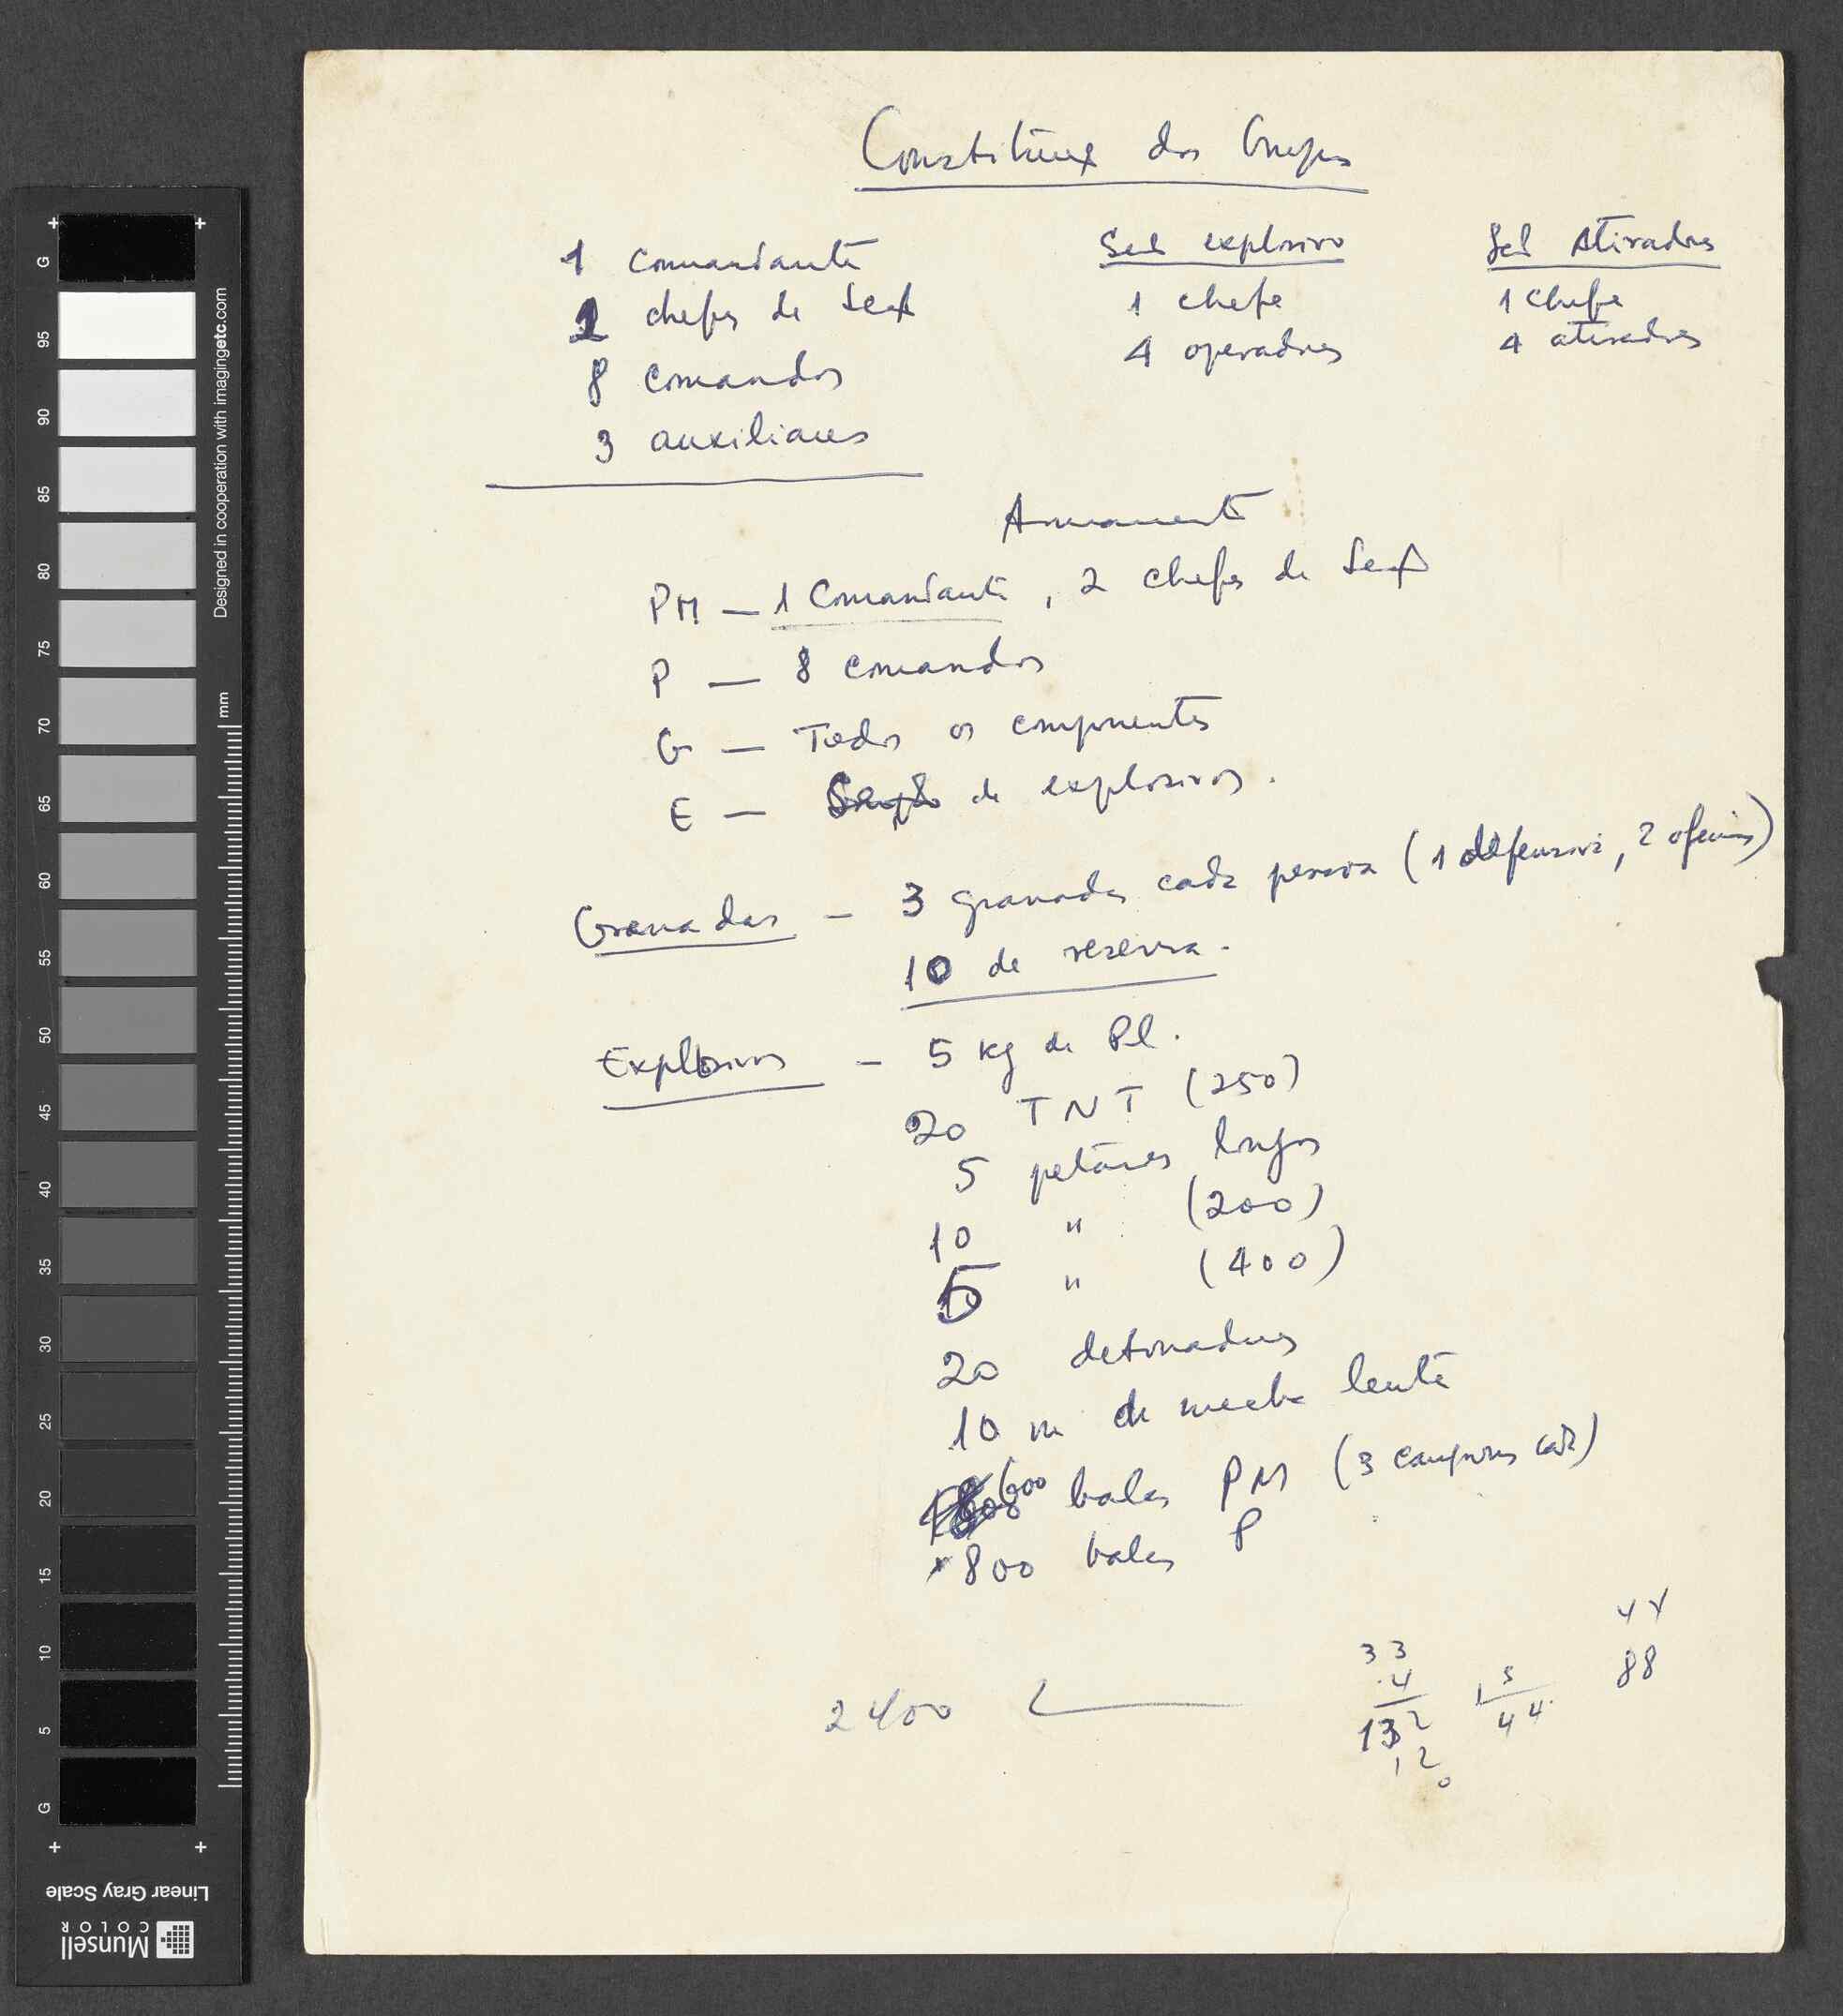 Constituição dos Grupos
1 Comandante
2 chefes de Secção
8 comandos
3 auxiliares
Sec explosivo
1 chefe
4 operadores
Sec Atiradores
1 chefe
4 atiradores
Armamento
PM — 1 Comandante, 2 chefes de Secção
P — 8 comandos
G — Todos os componentes
E — Secção de explosivos.
Granadas — 3 granadas cada pessoa (1 defensiva, 2 ofensivas)
10 de reserva.
Explosivos — 5 kg de Pl.
20 TNT (250)
5 petardos longos
10 " (200)
5 " (400)
20 detonadores
10 m de mecha lenta
600 balas PM (3 cada)
800 balas P
2400
33
4
132
12
0
3
44
44
88
G
95
90
85
80
75
70
65
60
55
50
45
40
35
30
25
20
15
10
5
G
mm
Designed in cooperation with imagingetc.com
Linear Gray Scale
Munsell
COLOR